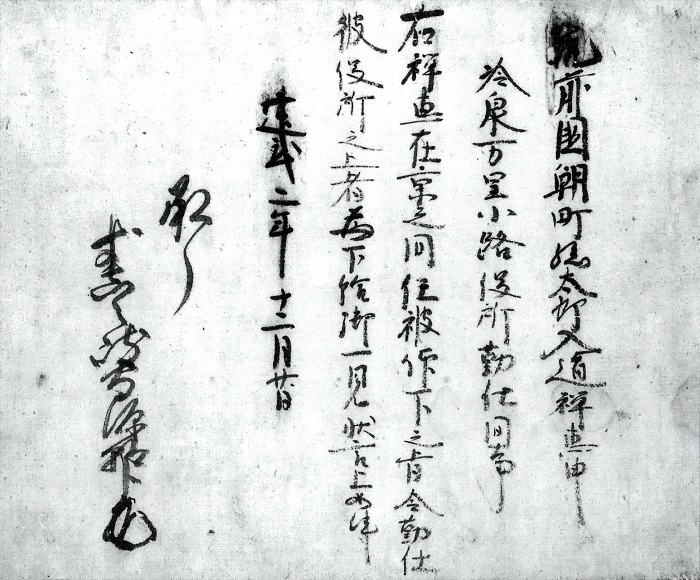 筑前国朝町孫太郎入道禅恵申
冷泉万里小路役所勤仕間事
右禅恵在京之間任被仰下之旨令勤仕
彼役所之上者為下給御一見状言上如件
建武二年十二月廿日
承了